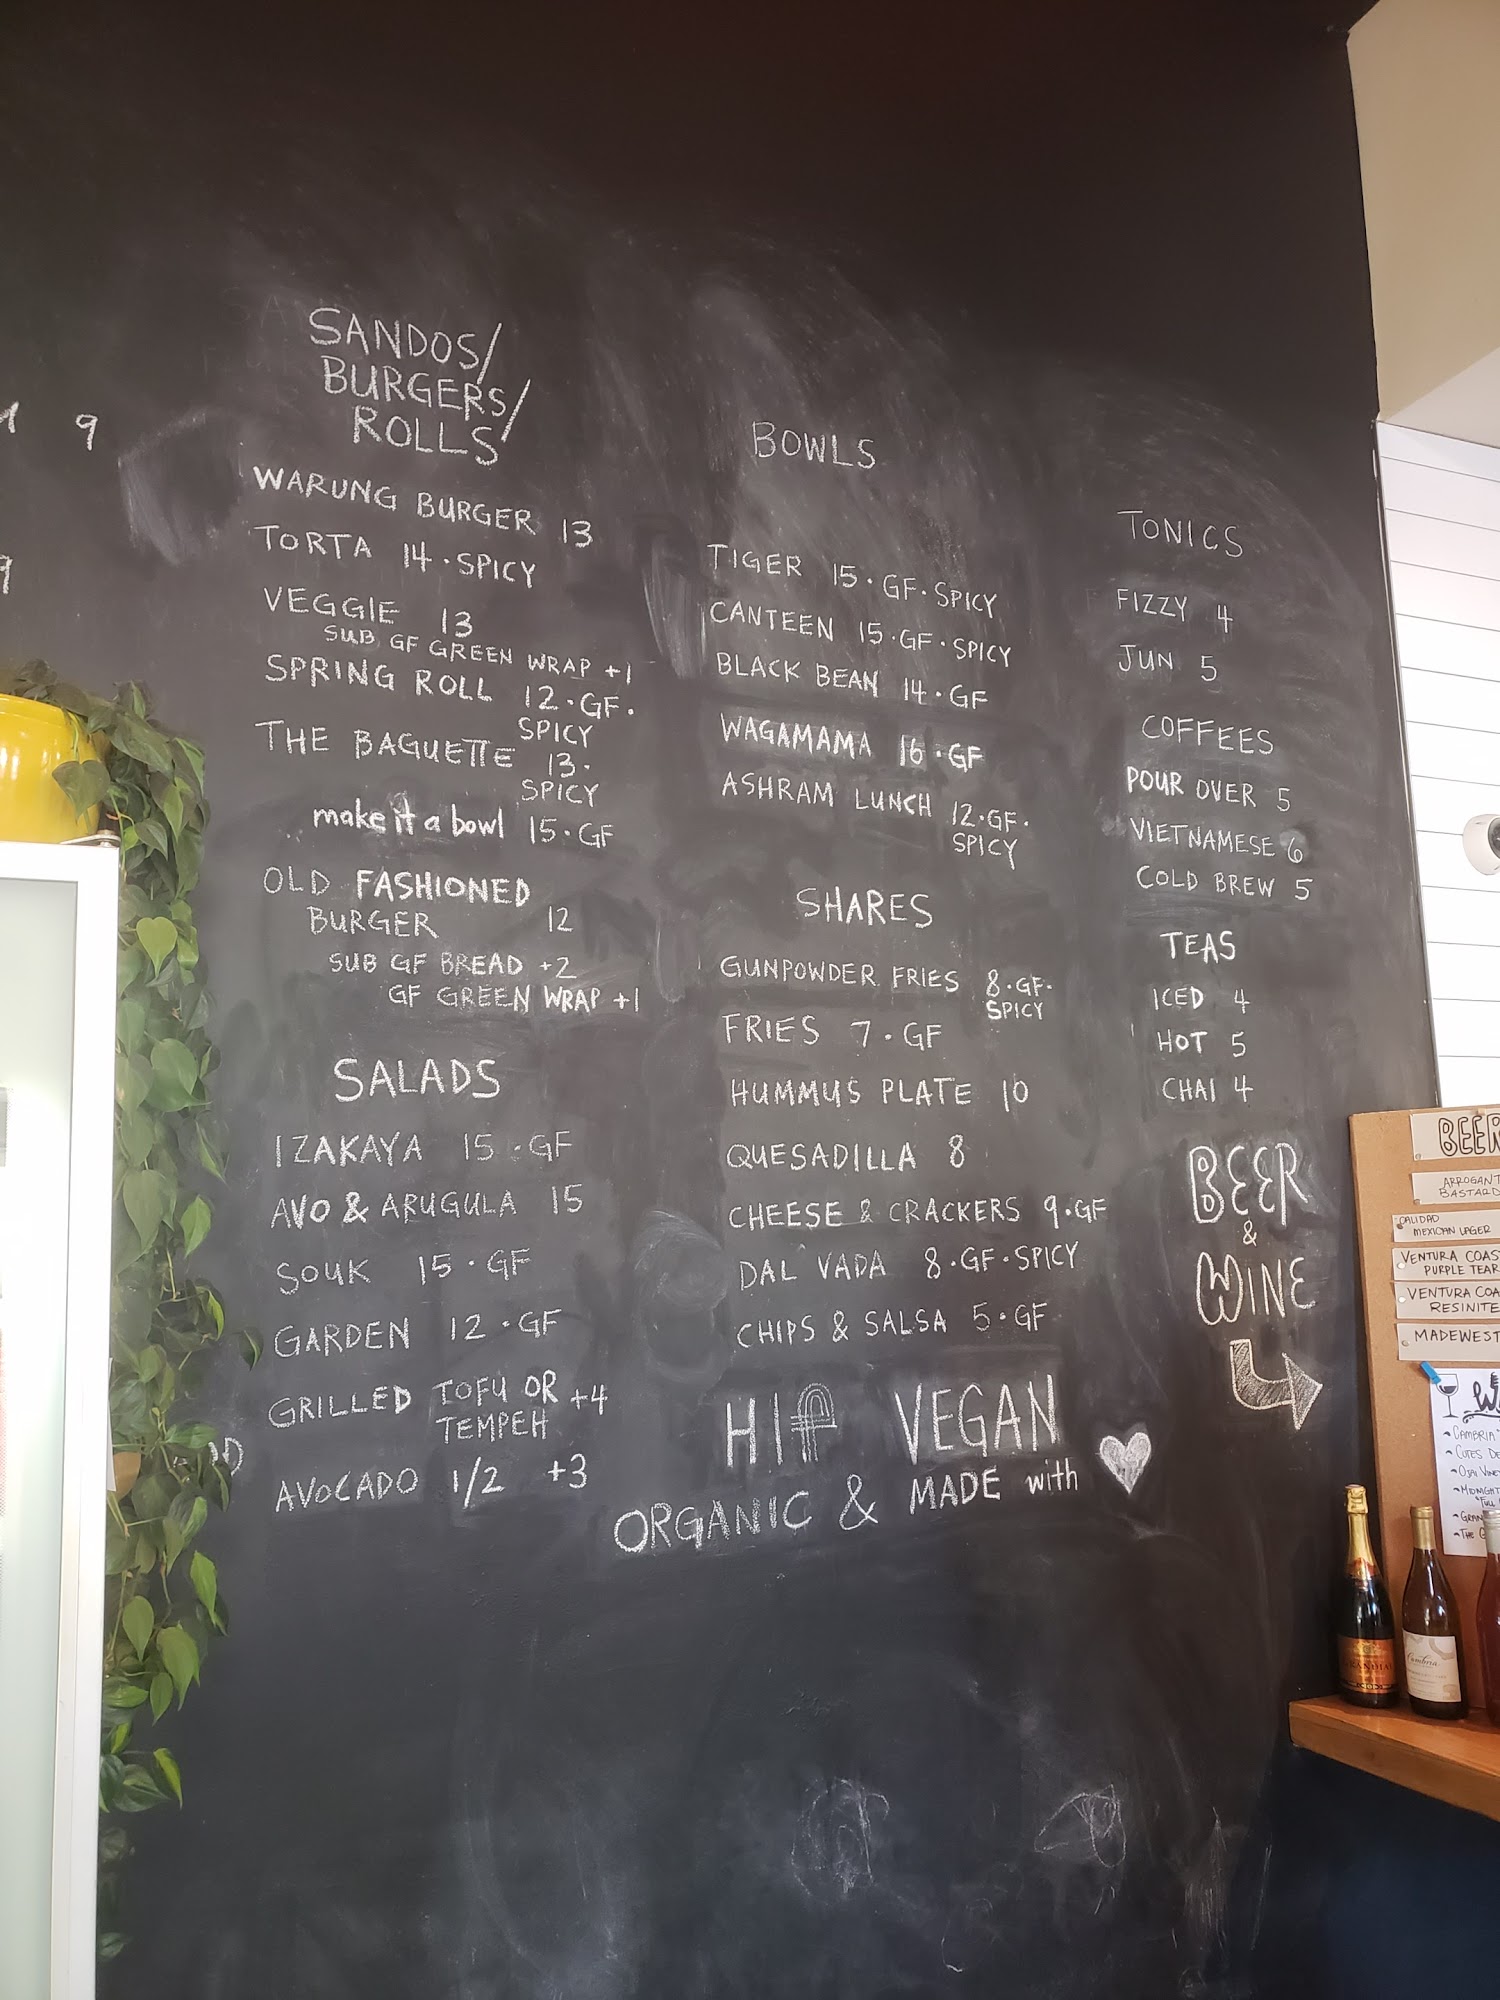 9
9
SANDOS/
BURGERS/
ROLLS
WARUNG BURGER 13
TORTA 14 · SPICY
VEGGIE 13
SUB GF GREEN WRAP +1
SPRING ROLL 12 · GF ·
SPICY
THE BAGUETTE 13 ·
SPICY
make it a bowl 15 · GF
OLD FASHIONED
BURGER 12
SUB GF BREAD +2
GF GREEN WRAP +1
SALADS
IZAKAYA 15 · GF
AVO & ARUGULA 15
SOUK 15 · GF
GARDEN 12 · GF
GRILLED TOFU OR +4
TEMPEH
AVOCADO 1/2 +3
BOWLS
TIGER 15 · GF · SPICY
CANTEEN 15 · GF · SPICY
BLACK BEAN 14 · GF
WAGAMAMA 16 · GF
ASHRAM LUNCH 12 · GF ·
SPICY
SHARES
GUNPOWDER FRIES 8 · GF ·
SPICY
FRIES 7 · GF
HUMMUS PLATE 10
QUESADILLA 8
CHEESE & CRACKERS 9 · GF
DAL VADA 8 · GF · SPICY
CHIPS & SALSA 5 · GF
HIP VEGAN
ORGANIC & MADE with
TONICS
FIZZY 4
JUN 5
COFFEES
POUR OVER 5
VIETNAMESE 6
COLD BREW 5
TEAS
ICED 4
HOT 5
CHAI 4
BEER
&
WINE
BEER
ARROGANT
BASTARD
CALIDAD
MEXICAN LAGER
VENTURA COAS
PURPLE TEAR
VENTURA COA
RESINITE
MADEWEST
CAMBRIA
Cambria